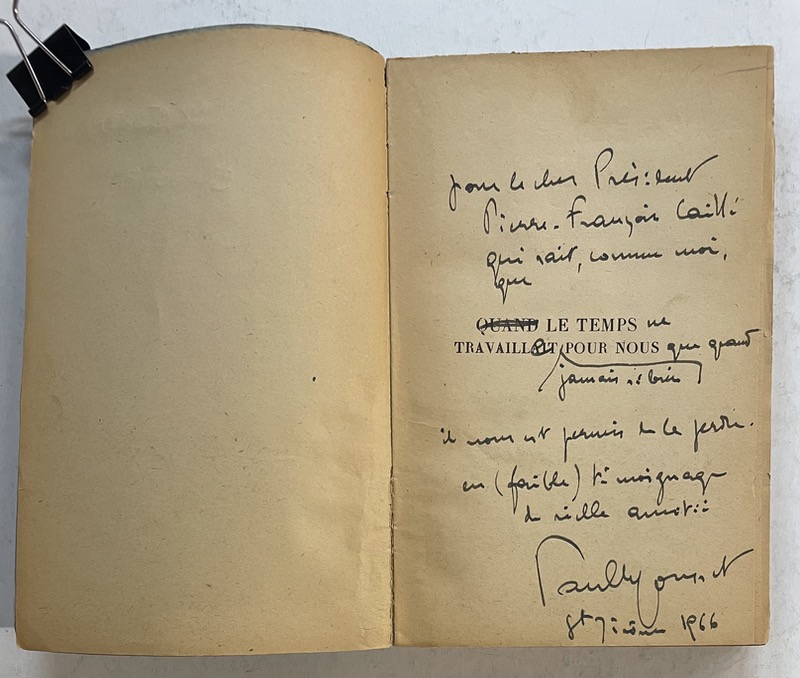 pour le cher Président
Pierre-François Caillé
qui sait, comme moi,
que
QUAND LE TEMPS ne
TRAVAILLAIT POUR NOUS que quand
jamais si bien
il nous est permis de le perdre.
en (faible) témoignage
de vieille amitié
St Jérôme 1966